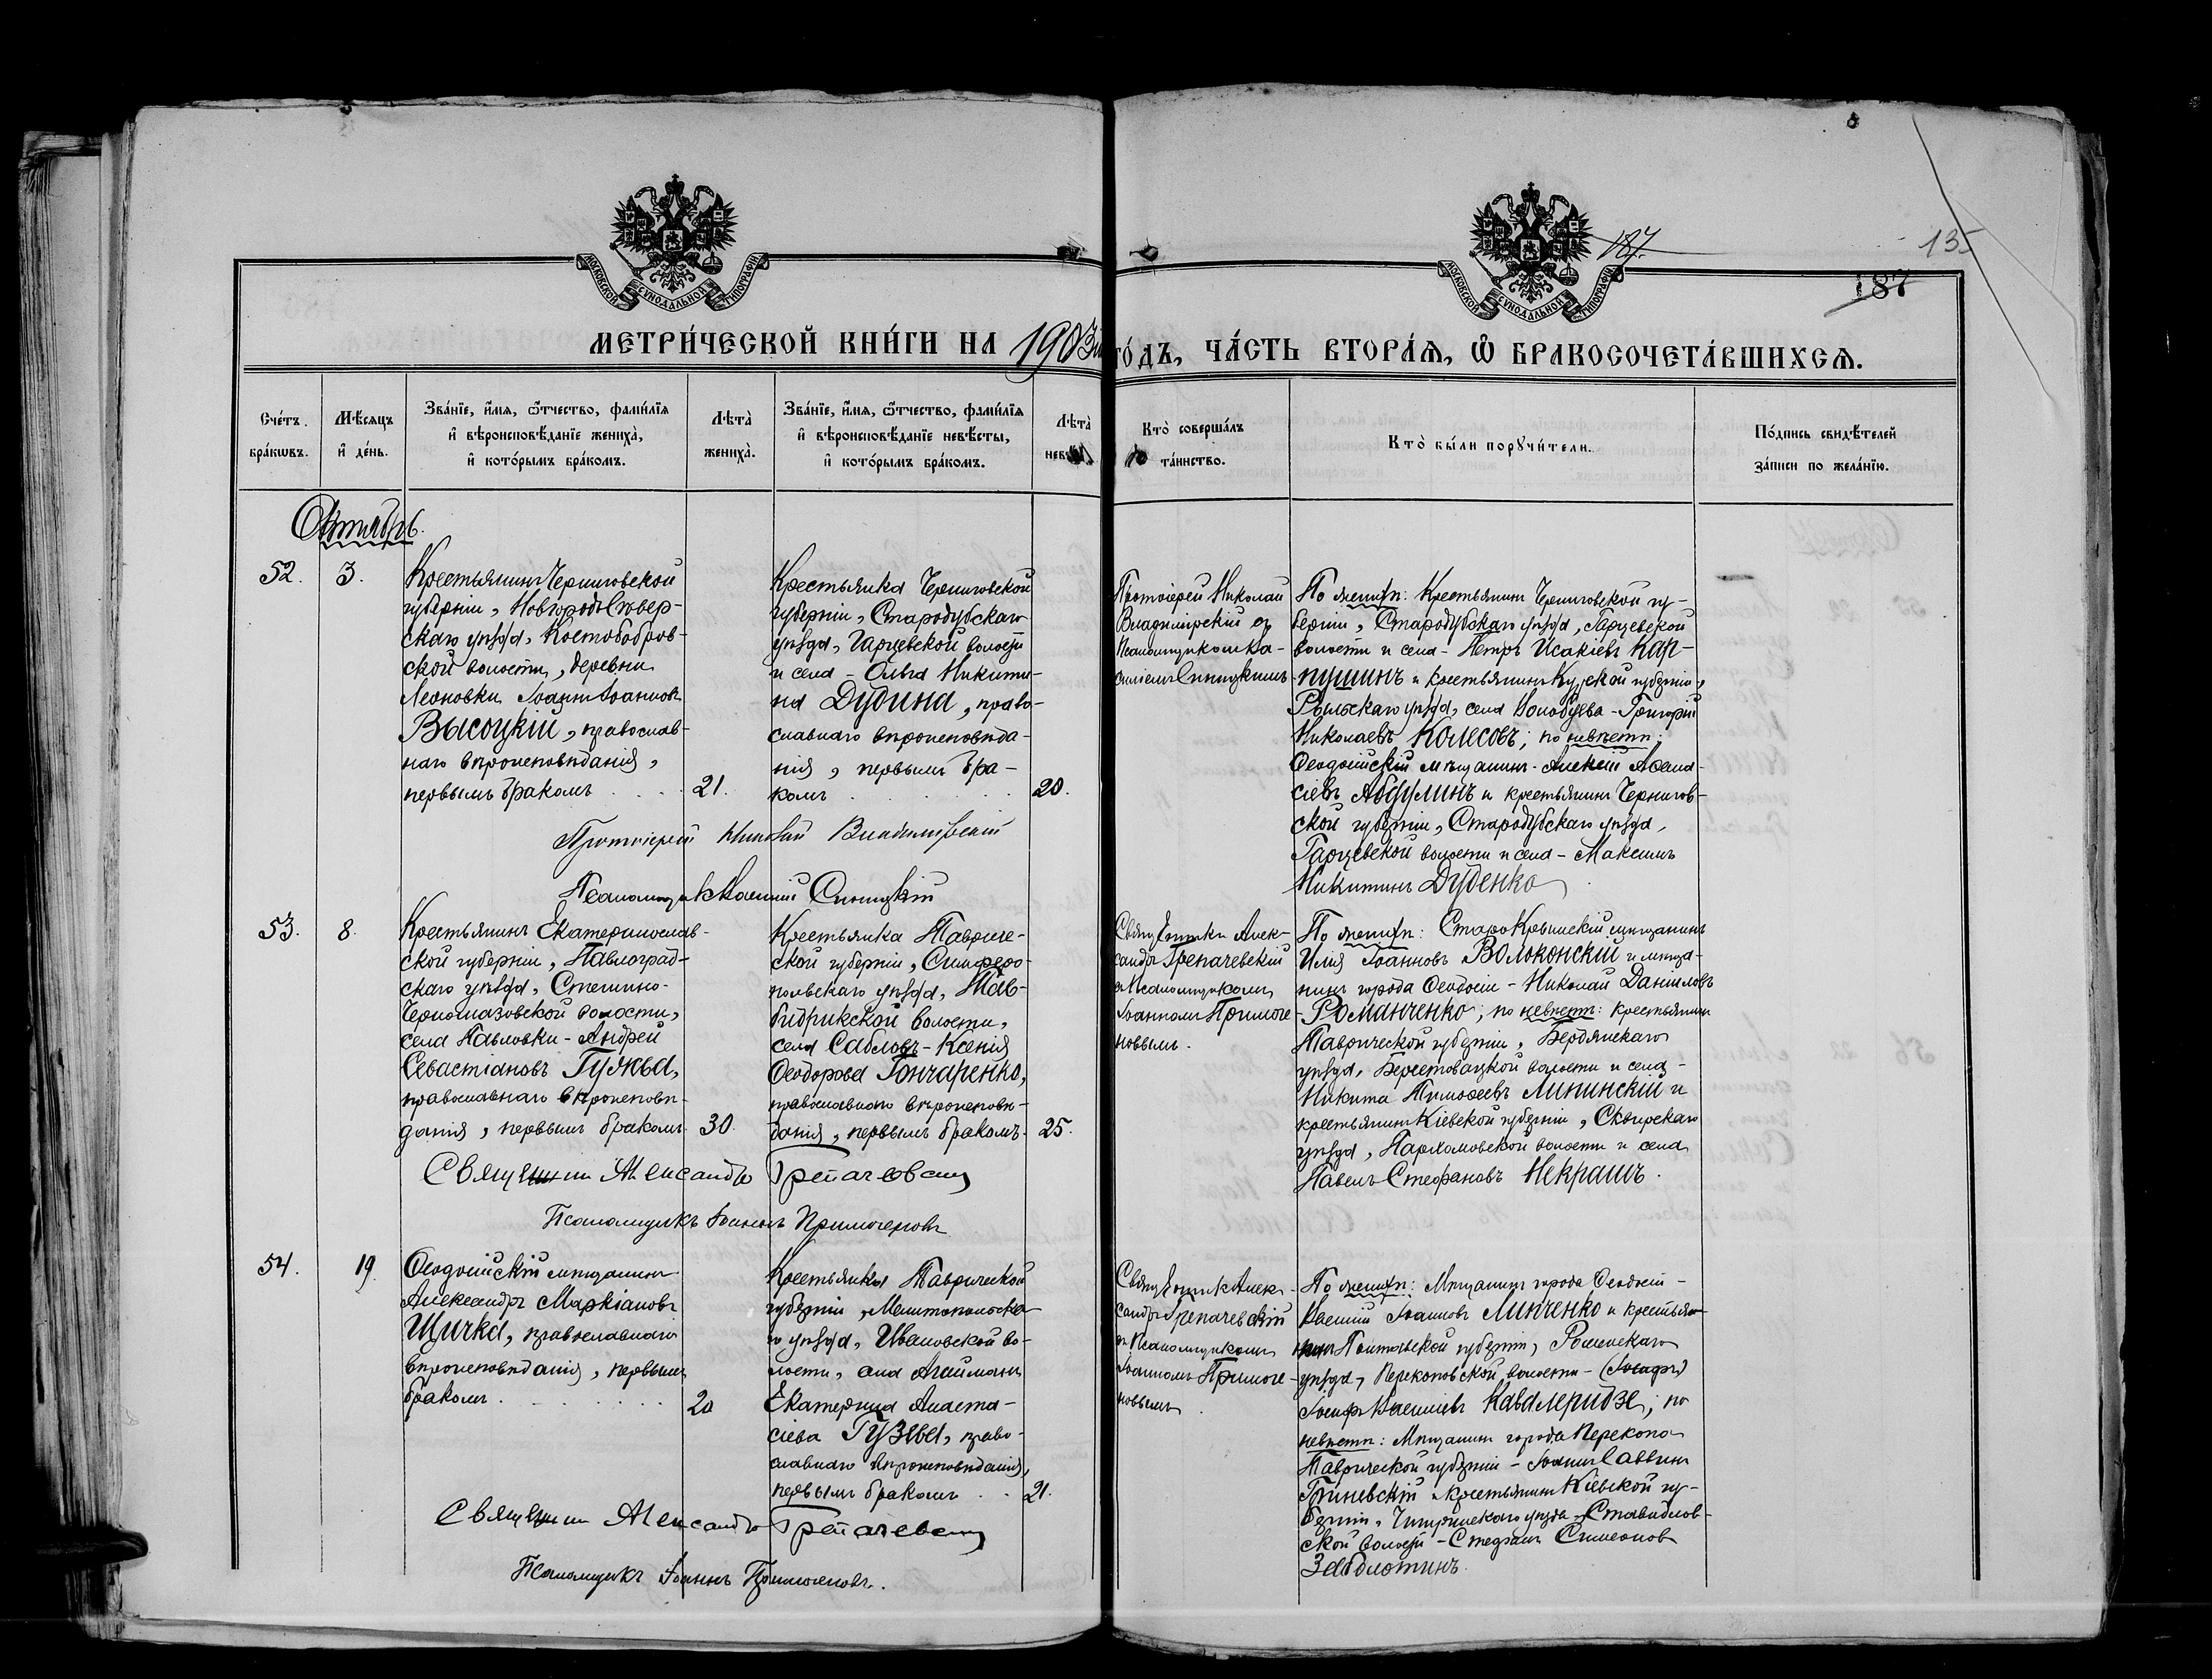 187.
135
187
МОСКОВСКОЙ СУНОДАЛЬНОЙ ТИПОГРАФІИ
МОСКОВСКОЙ СУНОДАЛЬНОЙ ТИПОГРАФІИ
МЕТРИ́ЧЕСКОЙ КНИ́ГИ НА 1903й
ГО́ДЪ, ЧА́СТЬ ВТОРА́Ѧ, Ѽ БРАКОСОЧЕТА́ВШИХСѦ.
Сче́тъ бра́кѡвъ.
Мѣ́сѧцъ и҆ де́нь.
Зва́нїе, и҆́мѧ, ѻ҆́тчество, фами́лїѧ
и҆ вѣроисповѣ́данїе жениха̀,
и҆ кото́рымъ бра́комъ.
Лѣ́та̀ жениха̀.
Зва́нїе, и҆́мѧ, ѻ҆́тчество, фами́лїѧ
и҆ вѣроисповѣ́данїе невѣ́сты,
и҆ кото́рымъ бра́комъ.
Лѣ́та̀
Кто̀ соверша́лъ
та́инство.
Кто̀ бы́ли порꙋчи́тели.
По́дпись свидѣ́телей
за́писи по жела́нїю.
Октябрь.
52.
3.
Крестьянинъ Черниговской
губерніи, Новгородъ Сѣвер-
скаго уѣзда, Костобобров-
ской волости, деревни
Леоновки Іоаннъ Іоанновъ
Высоцкій, православ-
наго вѣроисповѣданія,
первымъ бракомъ
21.
Крестьянка Черниговской
губерніи, Стародубскаго
уѣзда, Гарцевской волости
и села - Ольга Никити-
на Дудина, право-
славнаго вѣроисповѣда-
нія, первымъ бра-
комъ
20.
Протоіерей Николай
Владимірскій съ
Псаломщикомъ Ва-
силіемъ Синицкимъ
По женихѣ: Крестьянинъ Черниговской гу-
берніи, Стародубскаго уѣзда, Гарцевской
волости и села - Петръ Исакіевъ Кар-
пушинъ и крестьянинъ Курской губерніи,
Рыльскаго уѣзда, села - Григорій
Николаевъ Колесовъ; по невѣстѣ:
Ѳеодосійскій мѣщанинъ - Алексій Аѳана-
сіевъ Абдулинъ и крестьянинъ Чернигов-
ской губерніи, Стародубскаго уѣзда,
Гарцевской волости и села - Максимъ
Никитинъ Дуденко
Протоіерей Николай Владимірскій
Псаломщикъ Василій Синицкій
53.
8.
Крестьянинъ Екатеринослав-
ской губерніи, Павлоград-
скаго уѣзда,
волости,
села Павловки - Андрей
Севастіановъ Гужва,
православнаго вѣроисповѣ-
данія, первымъ бракомъ
30.
Крестьянка Тавриче-
ской губерніи, Симферо-
польскаго уѣзда, Тав-
бидрикской волости,
села Сабловъ - Ксенія
Ѳеодорова Гончаренко,
православнаго вѣроисповѣ-
данія, первымъ бракомъ
25.
Священникъ Алек-
сандръ Грепачевскій
съ Псаломщикомъ
Іоанномъ Примоге-
новымъ.
По женихѣ: Старо Крымскій мѣщанинъ
Илія Іоанновъ Волоконскій и мѣща-
нинъ города Ѳеодосіи - Николай Даниловъ
Романченко; по невѣстѣ: крестьянинъ
Таврической губерніи, Бердянскаго
уѣзда, Берестовацкой волости и села -
Никита Тимоѳеевъ Липинскій и
крестьянинъ Кіевской губерніи, Сквирскаго
уѣзда, Пархомовской волости и села
Павелъ Стефановъ Некрашъ.
Священникъ Александръ Грепачевскій
Псаломщикъ Іоаннъ Примогеновъ
54.
19.
Ѳеодосійскій мѣщанинъ
Александръ Маркіановъ
Щичка, православнаго
вѣроисповѣданія, первымъ
бракомъ
20
Крестьянка Таврической
губерніи, Мелитопольска-
го уѣзда, Ивановской во-
лости, села Агайманъ
Екатерина Анаста-
сіева Гузева, право-
славнаго вѣроисповѣданія,
первымъ бракомъ
21.
Священникъ Алек-
сандръ Грепачевскій
съ Псаломщикомъ
Іоанномъ Примоге-
новымъ
По женихѣ: Мѣщанинъ города Ѳеодосіи -
Василій Іоанновъ Линченко и крестья-
нинъ Полтавской губерніи, Роменскаго
уѣзда, Перекоповской волости -
Іосифъ Василіевъ Кавалеридзе; по
невѣстѣ: Мѣщанинъ города Перекопа
Таврической губерніи - Іоаннъ Саввинъ
Гриневскій и крестьянинъ Кіевской гу-
берніи, Чигиринскаго уѣзда, Ставидлов-
ской волости - Стефанъ Симеоновъ
Заболотинъ.
Священникъ Александръ Грепачевскій
Псаломщикъ Іоаннъ Примогеновъ.